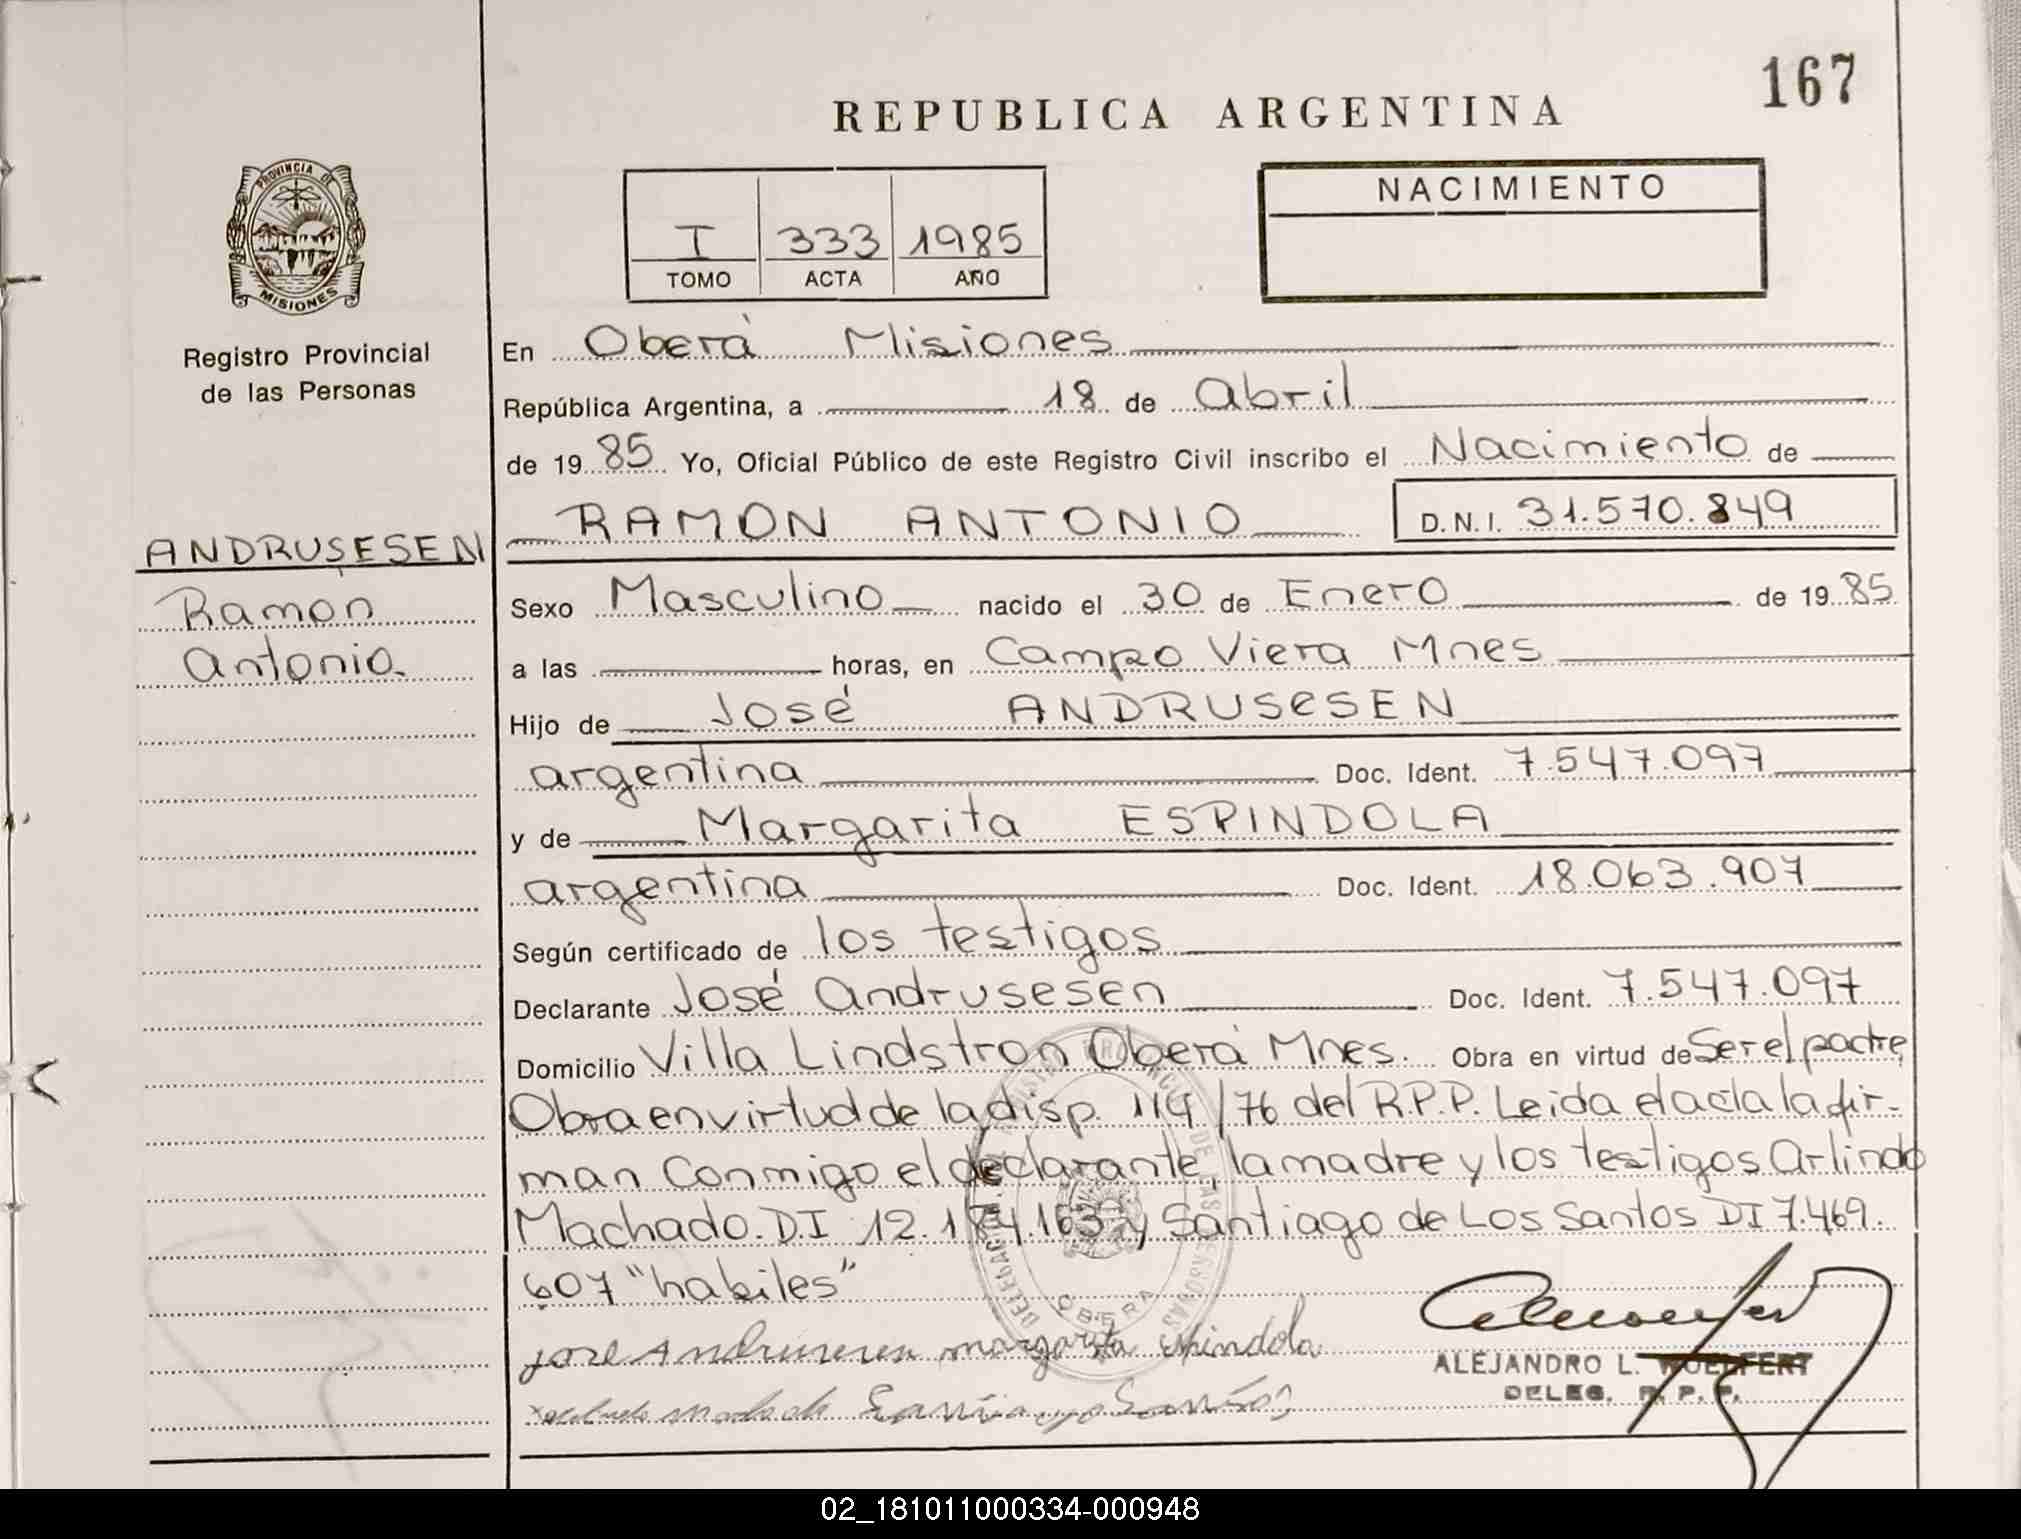 167
REPUBLICA ARGENTINA
PROVINCIA DE
MISIONES
Registro Provincial
de las Personas
I 333 1985
TOMO ACTA AÑO
NACIMIENTO
En Oberá Misiones
República Argentina, a 18 de Abril
de 1985 Yo, Oficial Público de este Registro Civil inscribo el Nacimiento de
RAMON ANTONIO D.N.I. 31.570.849
ANDRUSESEN
Ramon
Antonio.
Sexo Masculino nacido el 30 de Enero de 1985
a las horas, en Campo Viera Mnes
Hijo de José ANDRUSESEN
argentina Doc. Ident. 7.547.097
y de Margarita ESPINDOLA
argentina Doc. Ident. 18.063.907
Según certificado de los testigos
Declarante José Andrusesen Doc. Ident. 7.547.097
Domicilio Villa Lindstron Oberá Mnes. Obra en virtud de Ser el padre
Obra en virtud de la disp. 114/76 del R.P.P. Leida el acta la fir-
man conmigo el declarante, la madre y los testigos Arlindo
Machado. D.I 12.184.163 y Santiago de Los Santos DI 7.469.
607 "habiles"
jose Andrusesen margarita espindola
Santiago Santos
ALEJANDRO L. WOELFERT
DELEG. R. P. P.
OBERA
02_181011000334-000948